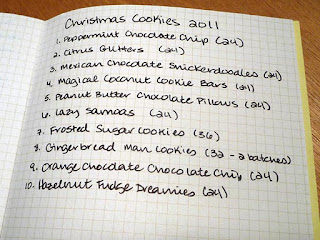 Christmas Cookies 2011
1. Peppermint Chocolate Chip (24)
2. Citrus Glitters (24)
3. Mexican Chocolate Snickerdoodles (24)
4. Magical Coconut Cookie Bars (24)
5. Peanut Butter Chocolate Pillows (24)
6. Lazy Samoas (24)
7. Frosted Sugar Cookies (36)
8. Gingerbread Man Cookies (32 - 2 batches)
9. Orange Chocolate Chocolate Chip (24)
10. Hazelnut Fudge Dreamies (24)